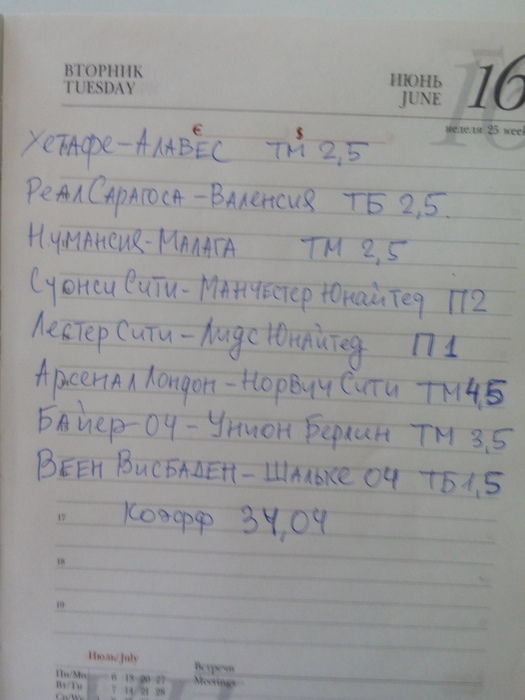 ВТОРНИК
TUESDAY
ИЮНЬ
JUNE
16
неделя 25 week
€ $
Хетафе-Алавес ТМ 2,5
Реал Сарагоса-Валенсия ТБ 2,5
Нумансия-Малага ТМ 2,5
Суонси Сити-Манчестер Юнайтед П2
Лестер Сити-Лидс Юнайтед П1
Арсенал Лондон-Норвич Сити ТМ 4,5
Байер-04-Унион Берлин ТМ 3,5
Веен Висбаден-Шальке 04 ТБ 1,5
17 Коэфф 34,04
18
19
Июль/July
Пн/Mo 6 13 20 27
Вт/Tu 7 14 21 28
Ср/We
Встречи
Meetings